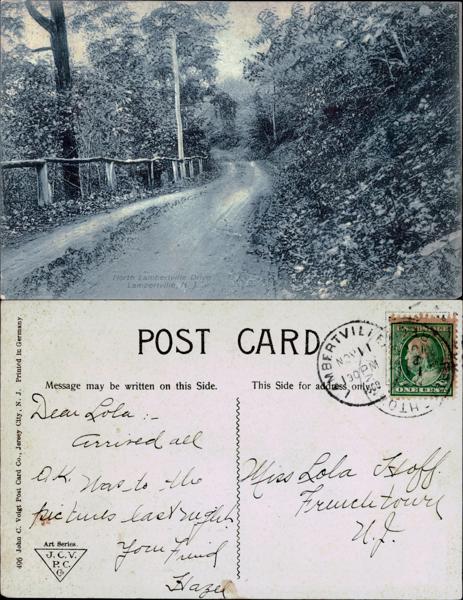 North Lambertville Drive
Lambertville, N. J.
POST CARD
Message may be written on this Side.
This Side for address only.
LAMBERTVILLE
NOV 11
130PM
U.S. POSTAGE
ONE CENT
406 John C. Voigt Post Card Co., Jersey City, N. J. Printed in Germany
Dear Lola :-
Arrived all
O.K. Was to the
pictures last night.
Your Friend
Hazel
Miss Lola Hoff.
Frenchtown
N.J.
Art Series.
J.C.V.
P.C.
Co.